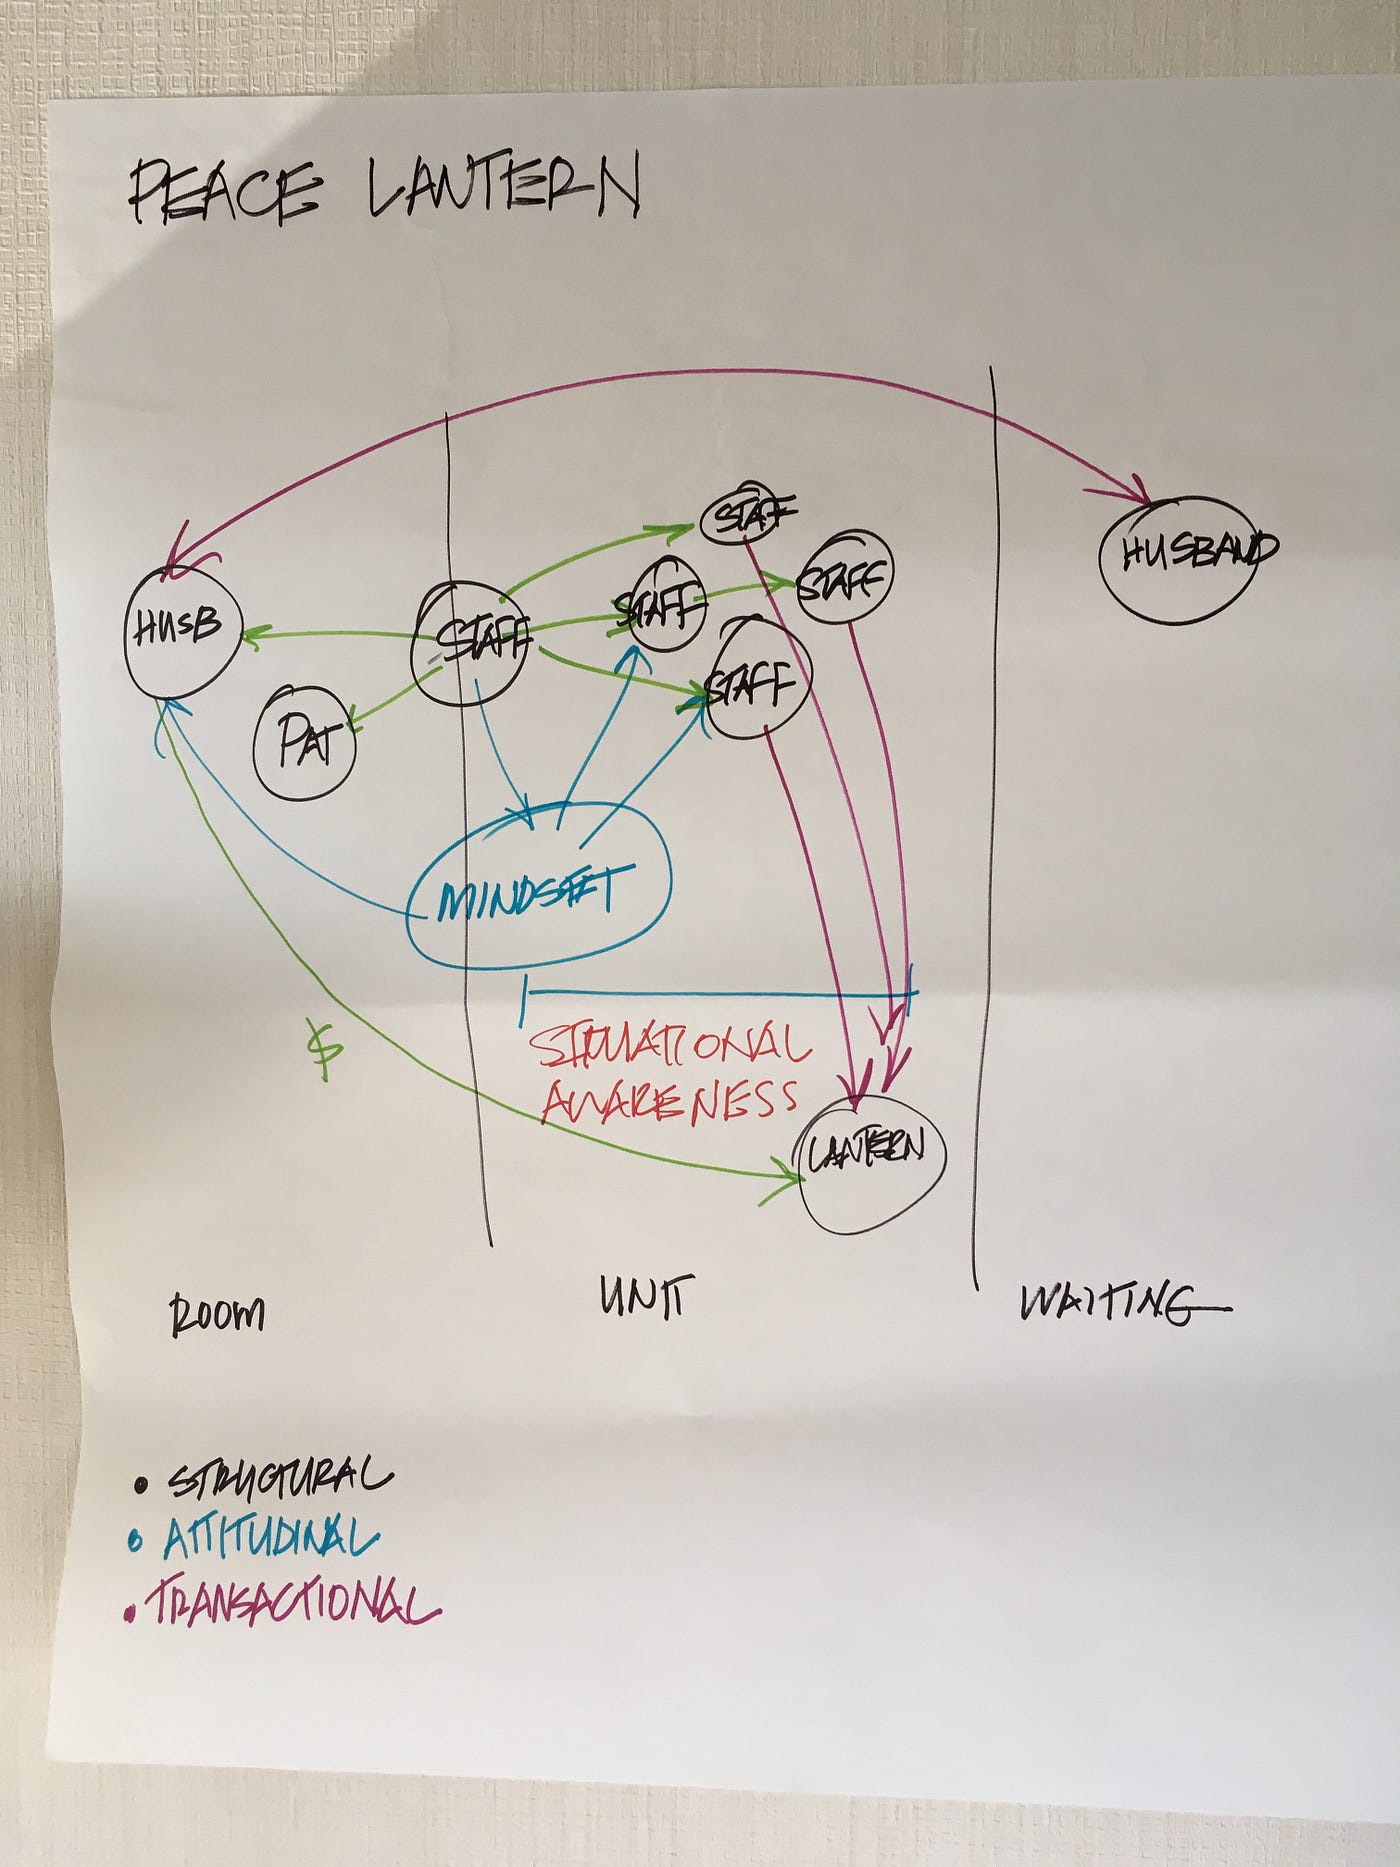 PEACE LANTERN
STAFF
HUSBAND
STAFF
STAFF
HUSB
STAFF
STAFF
PAT
MINDSET
$
SITUATIONAL
AWARENESS
LANTERN
ROOM
UNIT
WAITING
• STRUCTURAL
• ATTITUDINAL
• TRANSACTIONAL